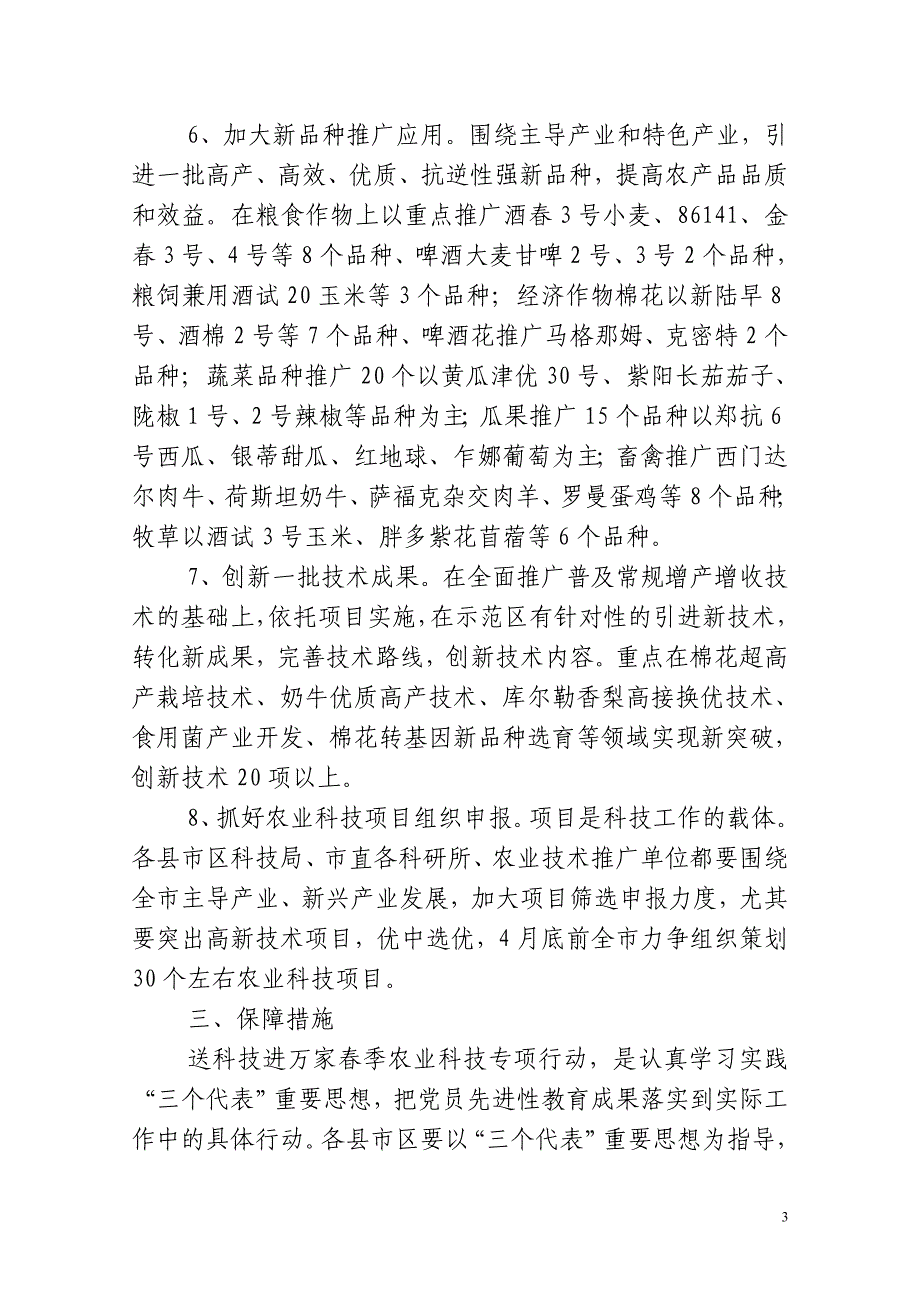 6、加大新品种推广应用。围绕主导产业和特色产业，引
进一批高产、高效、优质、抗逆性强新品种，提高农产品品质
和效益。在粮食作物上以重点推广酒春 3 号小麦、86141、金
春 3 号、4 号等 8 个品种、啤酒大麦甘啤 2 号、3 号 2 个品种，
粮饲兼用酒试 20 玉米等 3 个品种；经济作物棉花以新陆早 8
号、酒棉 2 号等 7 个品种、啤酒花推广马格那姆、克密特 2 个
品种；蔬菜品种推广 20 个以黄瓜津优 30 号、紫阳长茄茄子、
陇椒 1 号、2 号辣椒等品种为主；瓜果推广 15 个品种以郑抗 6
号西瓜、银蒂甜瓜、红地球、乍娜葡萄为主；畜禽推广西门达
尔肉牛、荷斯坦奶牛、萨福克杂交肉羊、罗曼蛋鸡等 8 个品种；
牧草以酒试 3 号玉米、胖多紫花苜蓿等 6 个品种。
7、创新一批技术成果。在全面推广普及常规增产增收技
术的基础上，依托项目实施，在示范区有针对性的引进新技术，
转化新成果，完善技术路线，创新技术内容。重点在棉花超高
产栽培技术、奶牛优质高产技术、库尔勒香梨高接换优技术、
食用菌产业开发、棉花转基因新品种选育等领域实现新突破，
创新技术 20 项以上。
8、抓好农业科技项目组织申报。项目是科技工作的载体。
各县市区科技局、市直各科研所、农业技术推广单位都要围绕
全市主导产业、新兴产业发展，加大项目筛选申报力度，尤其
要突出高新技术项目，优中选优，4 月底前全市力争组织策划
30 个左右农业科技项目。
三、保障措施
送科技进万家春季农业科技专项行动，是认真学习实践
“三个代表”重要思想，把党员先进性教育成果落实到实际工
作中的具体行动。各县市区要以“三个代表”重要思想为指导，
3